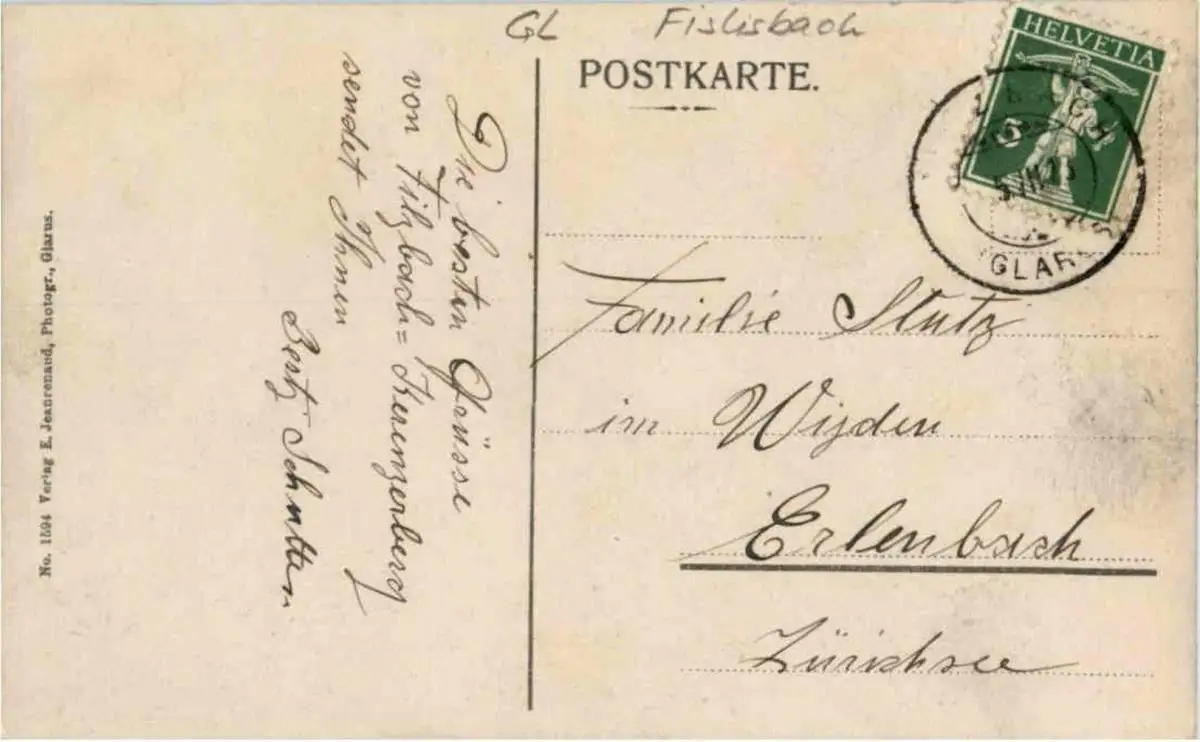 GL Fislisbach
POSTKARTE.
HELVETIA
5
GLAR
Die besten Grüsse
von Filzbach=Kerenzerberg
sendet Ihnen
Familie Stutz
im Wyden
Erlenbach
Zürichsee
No. 1594 Verlag E. Jeanrenaud, Photogr., Glarus.